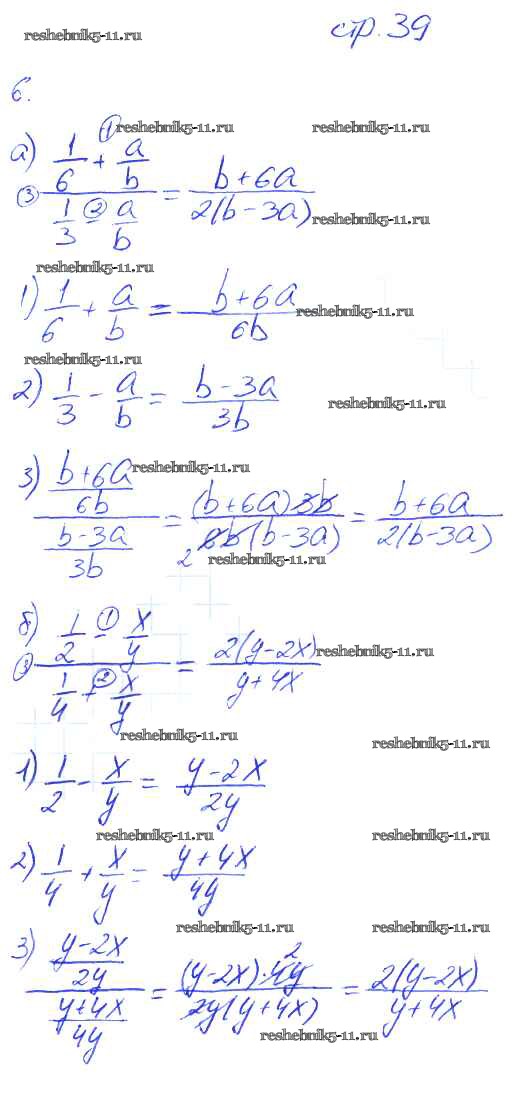 reshebnik5-11.ru
стр. 39
6.
reshebnik5-11.ru reshebnik5-11.ru
а) (1/6 + a/b) / (1/3 - a/b) = (b+6a) / (2(b-3a)) ① ② ③
reshebnik5-11.ru
reshebnik5-11.ru
1) 1/6 + a/b = (b+6a) / 6b
reshebnik5-11.ru
reshebnik5-11.ru
2) 1/3 - a/b = (b-3a) / 3b
reshebnik5-11.ru
reshebnik5-11.ru
3) ((b+6a) / 6b) / ((b-3a) / 3b) = ((b+6a) 3b) / (6b(b-3a)) 2 = (b+6a) / (2(b-3a))
reshebnik5-11.ru
б) (1/2 - x/y) / (1/4 + x/y) = (2(y-2x)) / (y+4x) ① ② ③
reshebnik5-11.ru
reshebnik5-11.ru reshebnik5-11.ru
1) 1/2 - x/y = (y-2x) / 2y
reshebnik5-11.ru reshebnik5-11.ru
2) 1/4 + x/y = (y+4x) / 4y
reshebnik5-11.ru reshebnik5-11.ru
3) ((y-2x) / 2y) / ((y+4x) / 4y) = ((y-2x)·4y) 2 / (2y(y+4x)) = (2(y-2x)) / (y+4x)
reshebnik5-11.ru